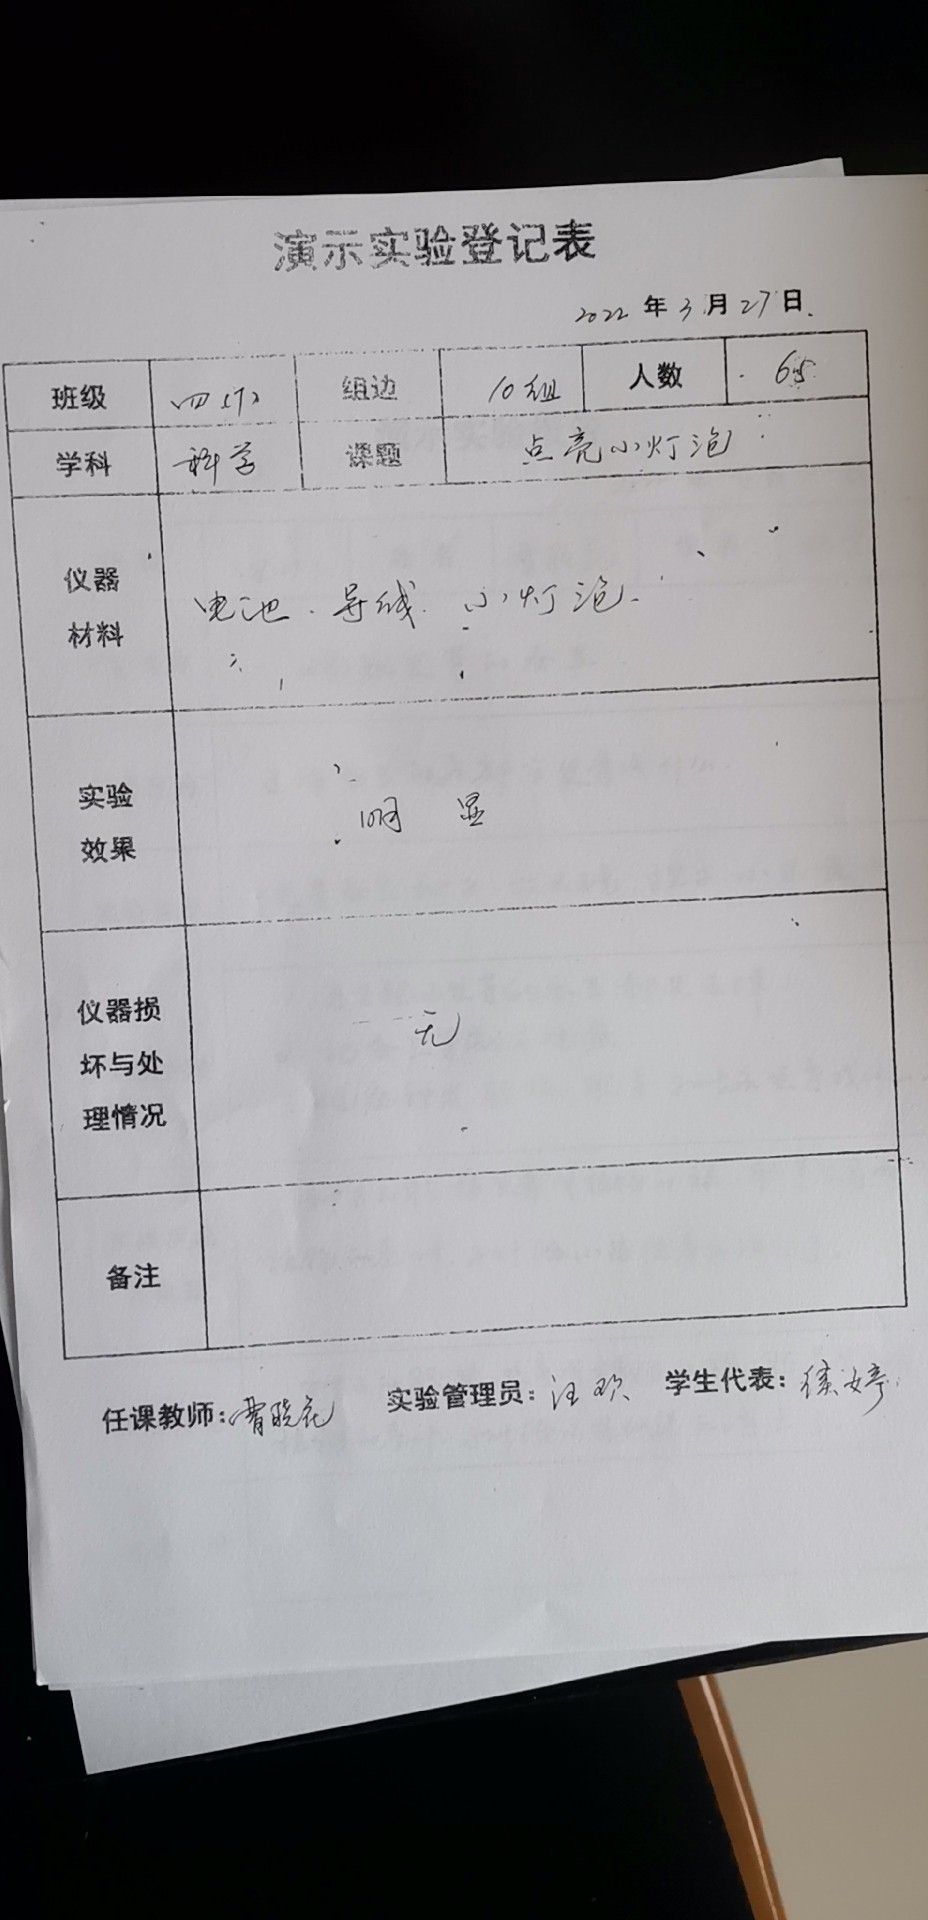 演示实验登记表
2022年3月27日
班级 四(1) 组边 10组 人数 65
学科 科学 课题 点亮小灯泡
仪器材料 电池、导线、小灯泡
实验效果 明显
仪器损坏与处理情况 无
备注
任课教师:曹晓花 实验管理员:汪欢 学生代表:婷